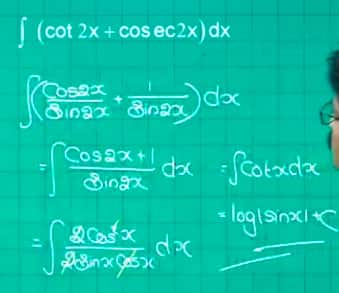 ∫ (cot 2x + cosec2x) dx
∫(Cos2x/Sin2x + 1/Sin2x) dx
= ∫ (Cos2x+1)/Sin2x dx
= ∫ 2Cos²x/(2SinxCosx) dx
= ∫Cotxdx
= log|sinx|+C